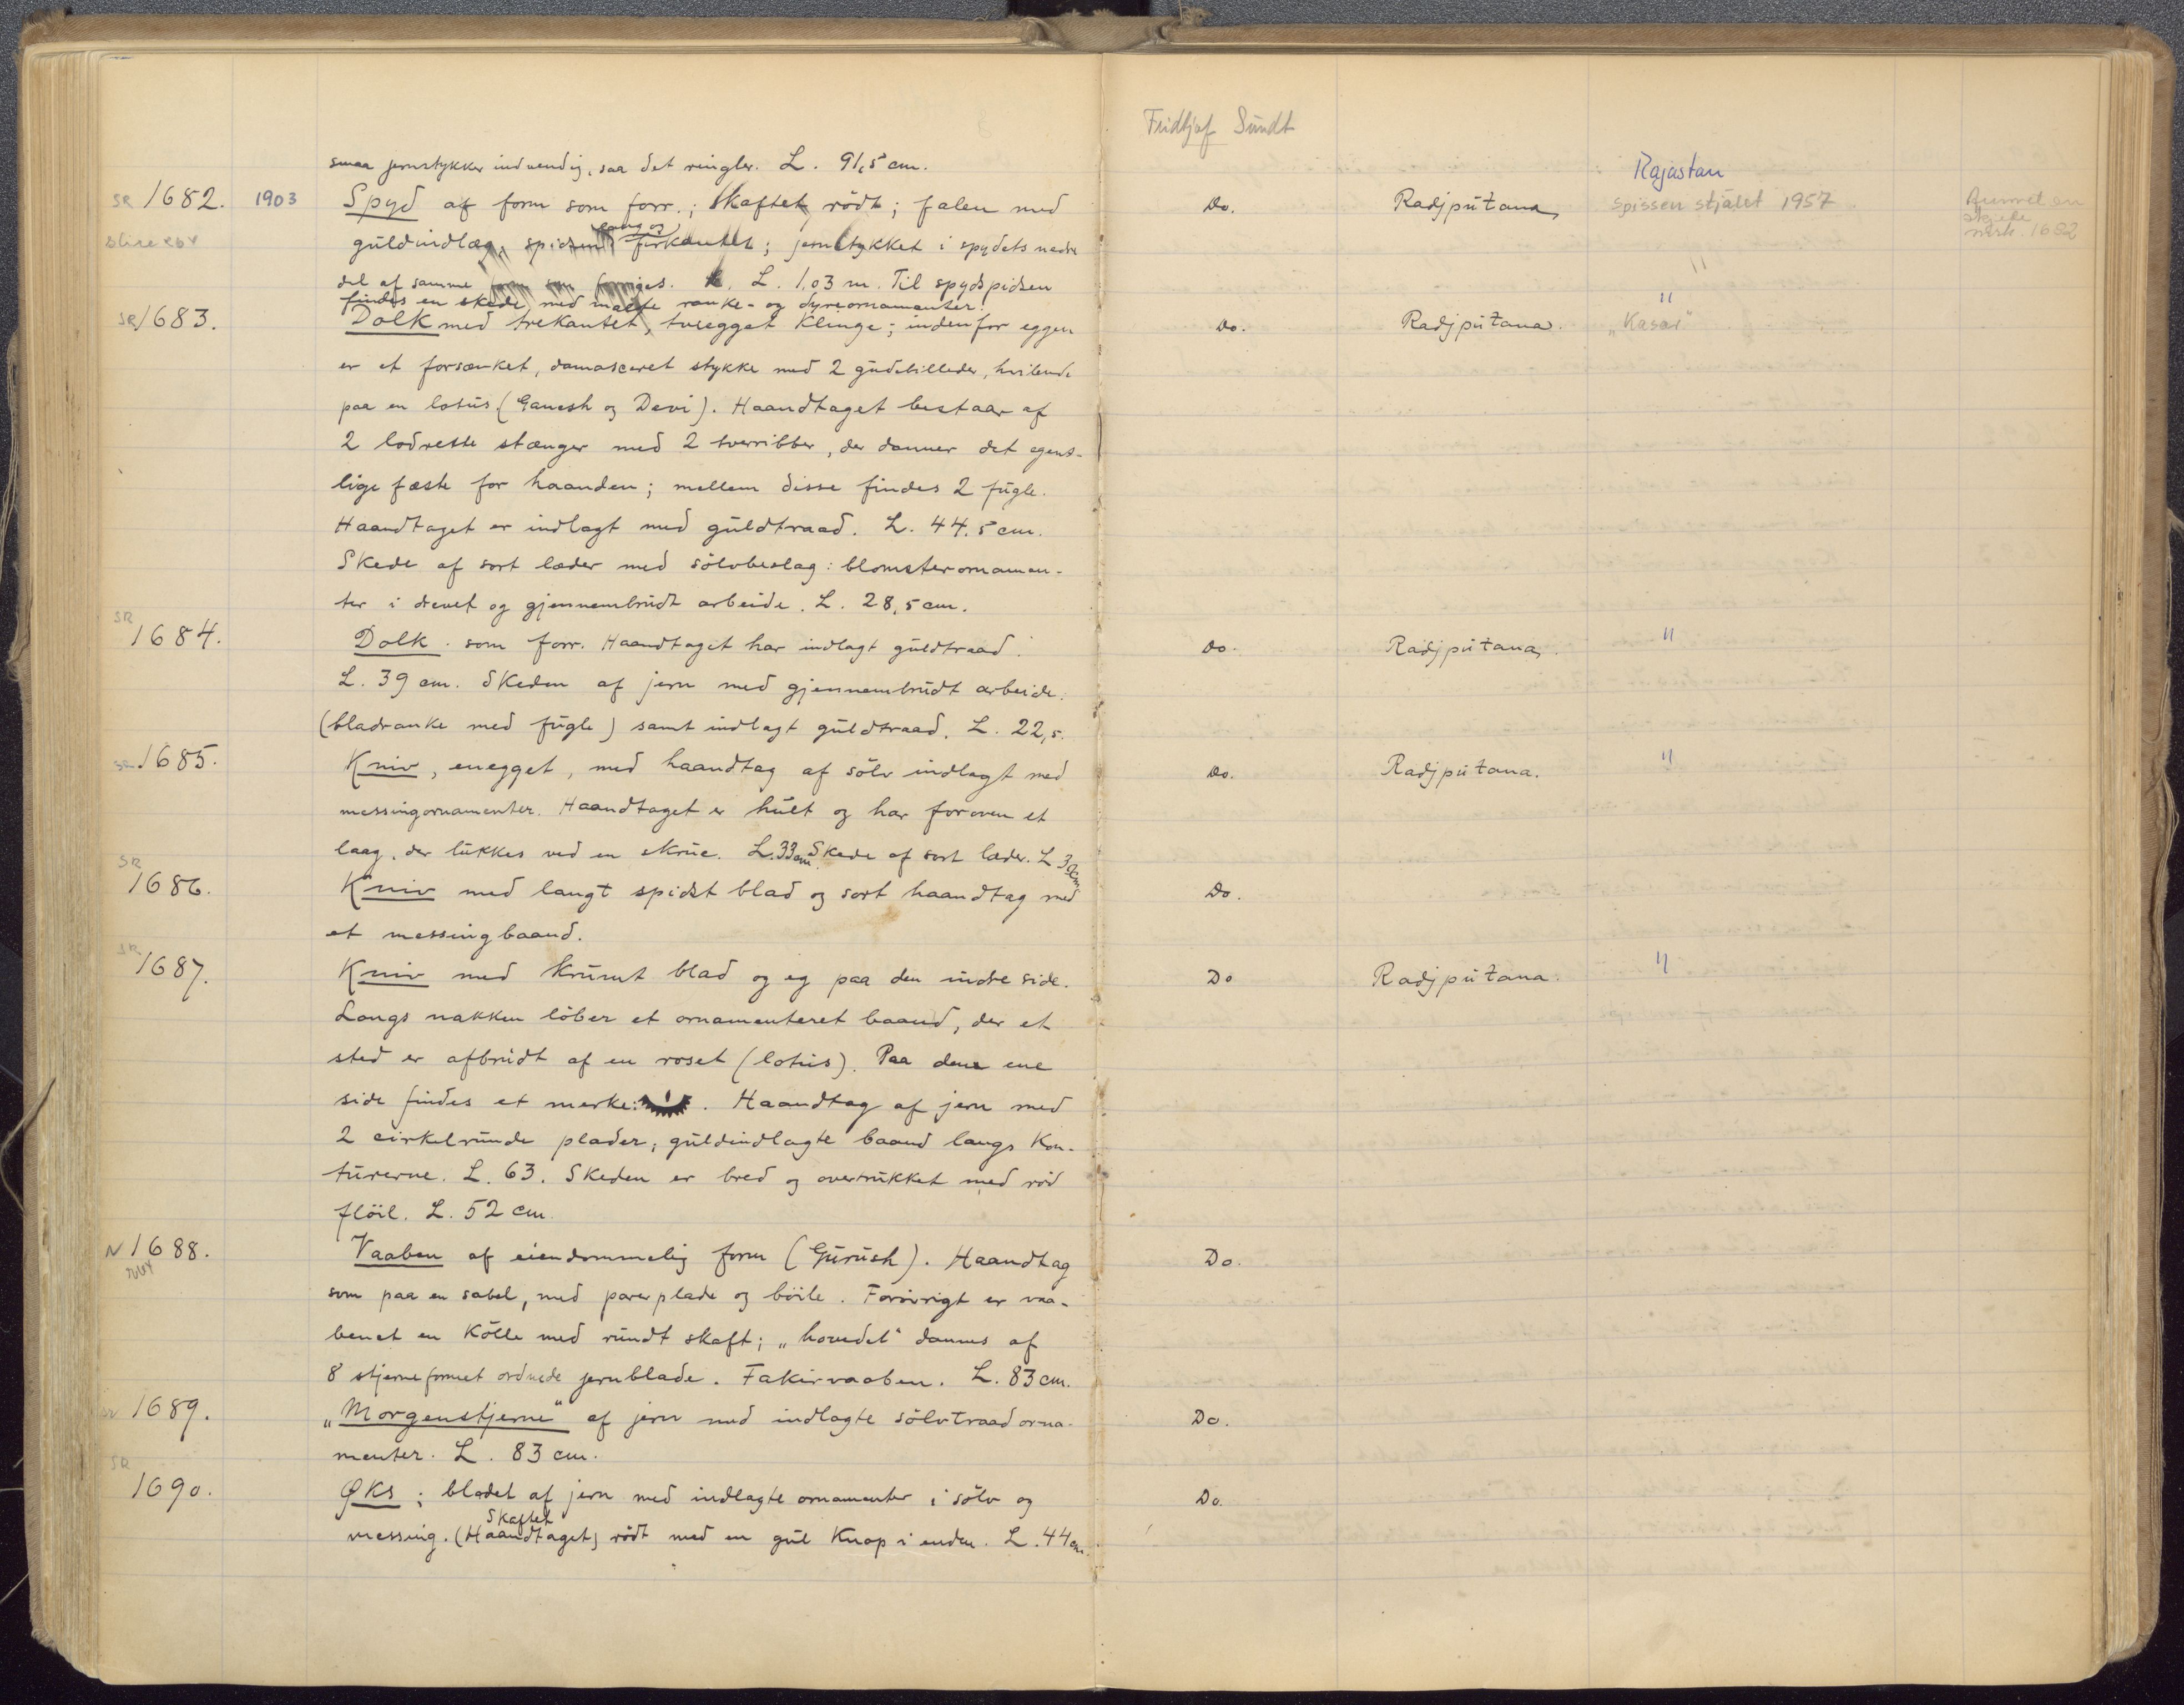 Fridtjof Sundt
smaa jernstykker indvendig, saa det ringler. L. 91,5 cm.
Rajastan
SR 1682. 1903 Spyd af form som forr.; Skaftet rödt; falen med Do. Radjputana, spissen stjålet 1957
slire
lang og
guldindlæg, spidsen firkantet; jernstykket i spydets nedre
skjede
merk. 1682
del af samme form som forriges. L. 1,03 m. Til spydspidsen
findes en skede med malte ranke- og dyreornamenter.
"
SR 1683. Dolk med trekantet, tveegget Klinge; indenfor eggen Do. Radjputana. „Kasar"
er et forsænket, damasceret stykke med 2 gudebilleder, hvilende
paa en lotus (Ganesh og Devi). Haandtaget bestaar af
2 lodrette stænger med 2 tverribber, der danner det egent-
lige fæste for haanden; mellem disse findes 2 fugle.
Haandtaget er indlagt med guldtraad. L. 44.5 cm.
Skede af sort læder med sölvbeslag: blomsterornamen-
ter i drevet og gjennembrudt arbeide. L. 28,5 cm.
SR 1684. Dolk som forr. Haandtaget har indlagt guldtraad. Do. Radjputana, "
L. 39 cm. Skeden af jern med gjennembrudt arbeide.
(bladranke med fugle) samt indlagt guldtraad. L. 22,5.
SR 1685. Kniv, enegget, med haandtag af sölv indlagt med Do. Radjputana. "
messingornamenter. Haandtaget er hult og har foroven et
laag, der lukkes ved en skrue. L. 33 cm Skede af sort læder. L
SR 1686. Kniv med langt spidst blad og sort haandtag med Do.
et messingbaand.
SR 1687. Kniv med krumt blad og eg paa den indre side. Do Radjputana. "
Langs nakken löber et ornamenteret baand, der et
sted er afbrudt af en roset (lotus). Paa den ene
side findes et merke: . Haandtag af jern med
2 cirkelrunde plader; guldindlagte baand langs Kon-
turerne. L. 63. Skeden er bred og overtrukket med röd
flöil. L. 52 cm.
N 1688. Vaaben af eiendommelig form (Gurush). Haandtag Do.
som paa en sabel, med parerplade og böile. Forövrigt er vaa-
benet en Kölle med rundt skaft; „hovedet" dannes af
8 stjerneformet ordnede jernblade. Fakirvaaben. L. 83 cm.
SR 1689. „Morgenstjerne" af jern med indlagte sölvtraadorna- Do.
menter. L. 83 cm.
SR 1690. Øks; bladet af jern med indlagte ornamenter i sölv og Do.
Skaftet
messing. (Haandtaget) rödt med en gul Knop i enden. L. 44 cm.